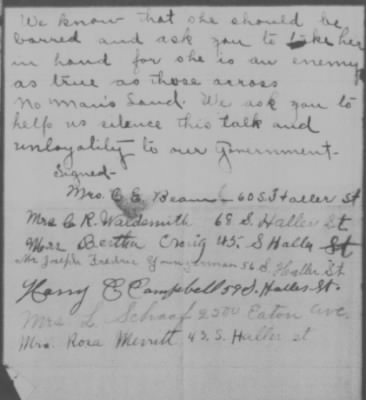 We know that she should be
barred and ask you to take her
in hand for she is an enemy
as true as those across
No Man's Land. We ask you to
help us silence this talk and
unloyality to our Government-
Signed-
Mrs. C E Beam 60 S. Haller St
Mrs C. R. Waldsmith 68 S. Haller St.
Mrs Bertha Craig 45 S Haller St
Mr Joseph Fredric Youngerman 56 S. Haller St.
Harry C Campbell 59 S. Haller St.
Mrs L Schaaf 2500 Eaton Ave.
Mrs. Rosa Merritt 43. S. Haller st